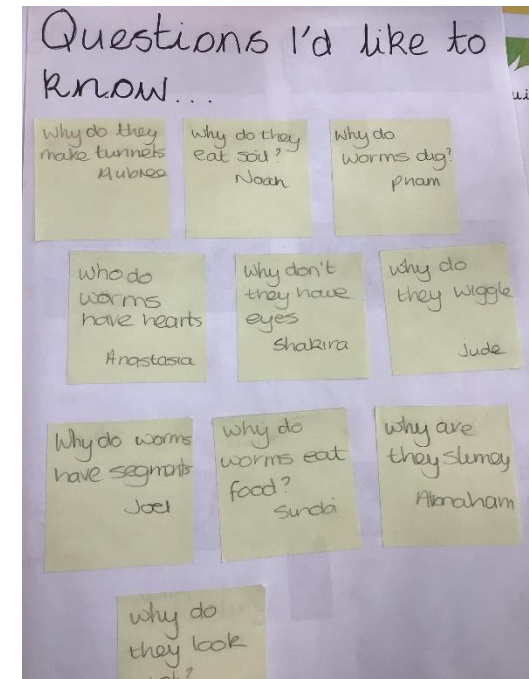 Questions I'd like to
know...
Why do they
make tunnels
Aubree
why do they
eat soil?
Noah
Why do
worms dig?
Pham
Who do
worms
have hearts
Anastasia
Why don't
they have
eyes
Shakira
why do
they wiggle
Jude
Why do worms
have segments
Joel
why do
worms eat
food?
why are
they slimey
Abraham
why do
they look